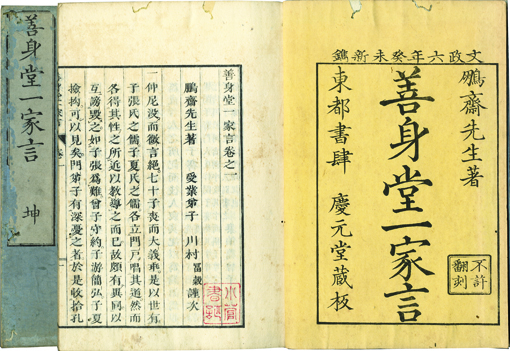 文政六年癸未新鐫
鵬齋先生著
善身堂一家言
東都書肆 慶元堂蔵板
不許
翻刻
善身堂一家言卷之一
鵬齋先生著 受業弟子 川村冨穀謹次
一仲尼没而微言絶七十子喪而大義乖是以世有
子張氏之儒子夏氏之儒各立門戸唱其道然而
各得其性之所近以教導之而已故頗有異同以
互謗毀之如子張為難曾子守約子游簡弘子夏
撿拘可以見矣門弟子有深憂之者於是收拾孔
善身堂一家言 坤